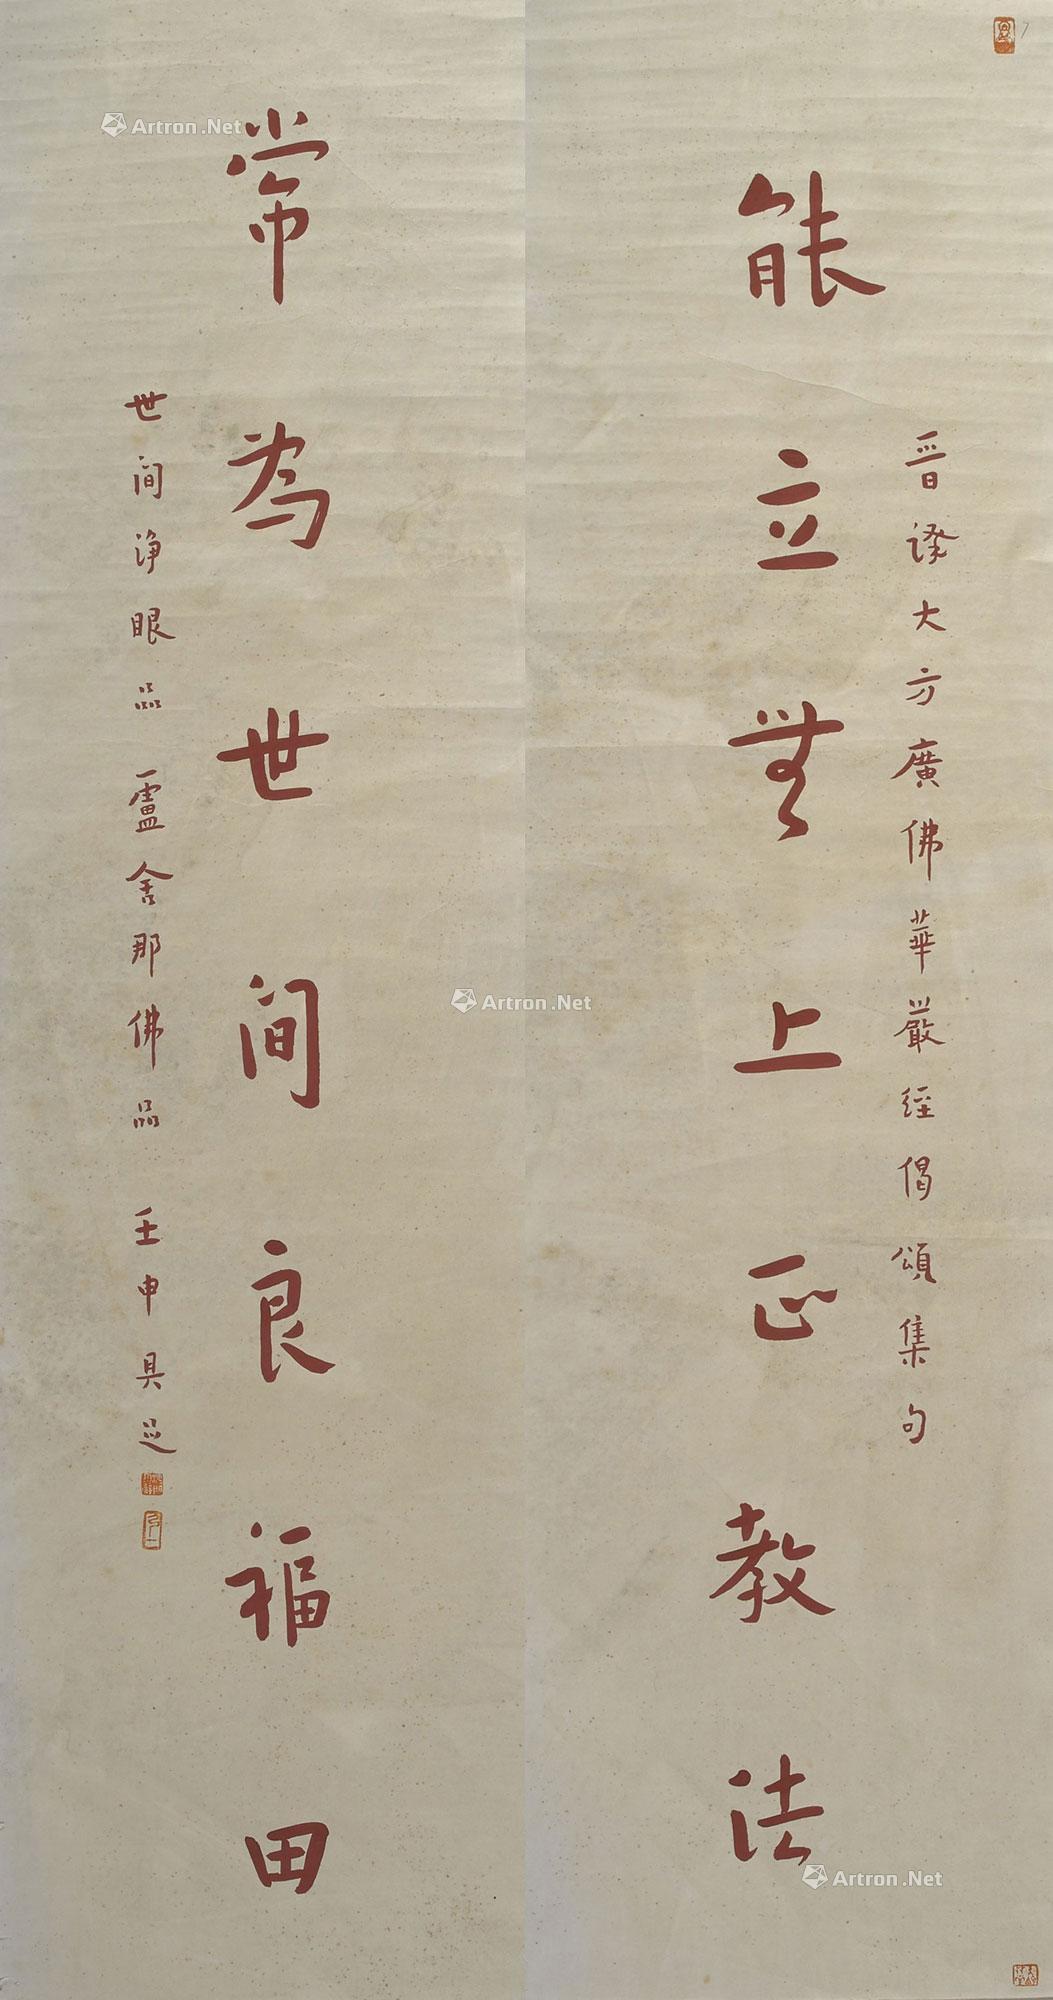 能立無上正教法
晋譯大方廣佛華嚴經偈頌集句
常為世間良福田
世間淨眼品 盧舍那佛品 壬申 具足
Artron.Net
Artron.Net
Artron.Net